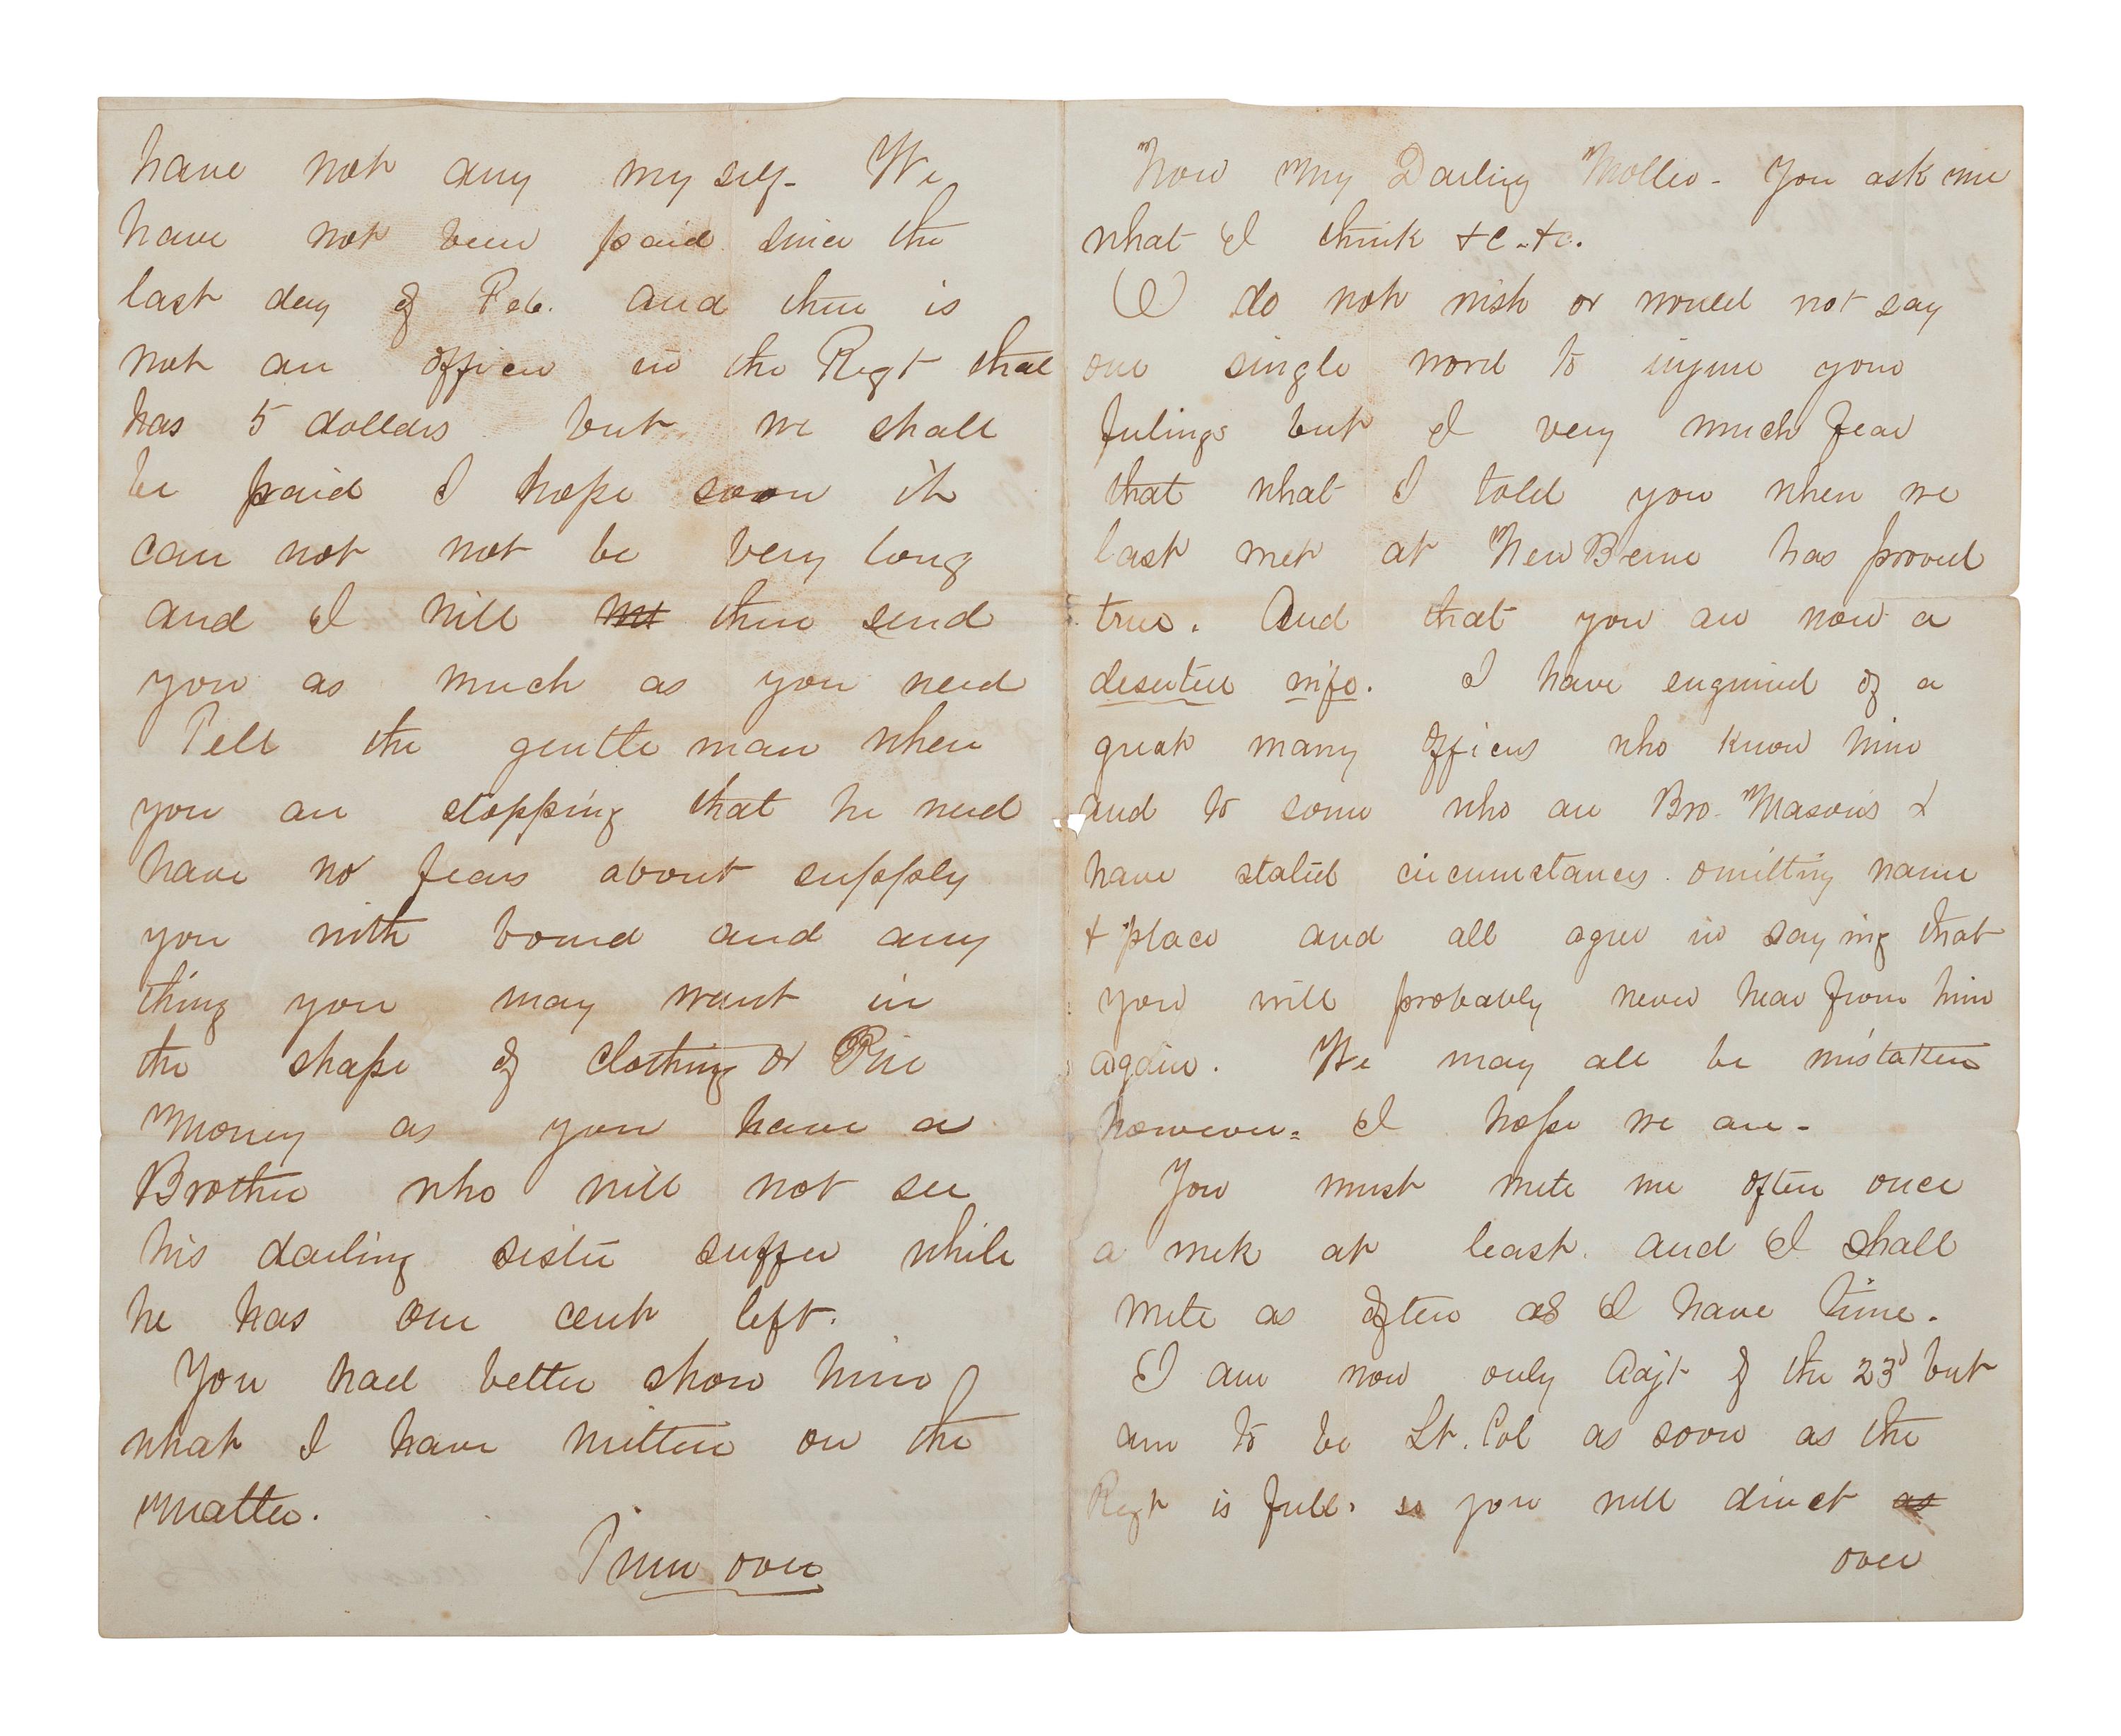 have not any my self- We
have not been paid since the
last day of Feb. and there is
not an officer in the Regt that
has 5 dollars but we shall
be paid I hope soon it
can not not be very long
and I will then send
you as much as you need
Tell the gentle man when
you are stopping that he need
have no fears about supply
you with board and any
thing you may want in
the shape of clothing or
Money as you have a
Brother who will not see
his darling sister suffer while
he has one cent left.
You had better show him
what I have written on the
matter.
Turn over
Now My Darling Mollie - You ask me
what I think &c - &c.
I do not wish or would not say
one single word to injure your
feelings but I very much fear
that what I told you when we
last met at New Berne has proved
true. And that you are now a
deserted wife. I have enquired of a
great many officers who know him
and to some who are Bro. Masons &
have stated circumstances omitting name
& place and all agree in saying that
you will probably never hear from him
again. We may all be mistaken
however - I hope we are -
You must write me often once
a week at least. and I shall
write as often as I have time.
I am now only Adjt of the 23d but
am to be Lt. Col as soon as the
Regt is full. so you will direct as
over